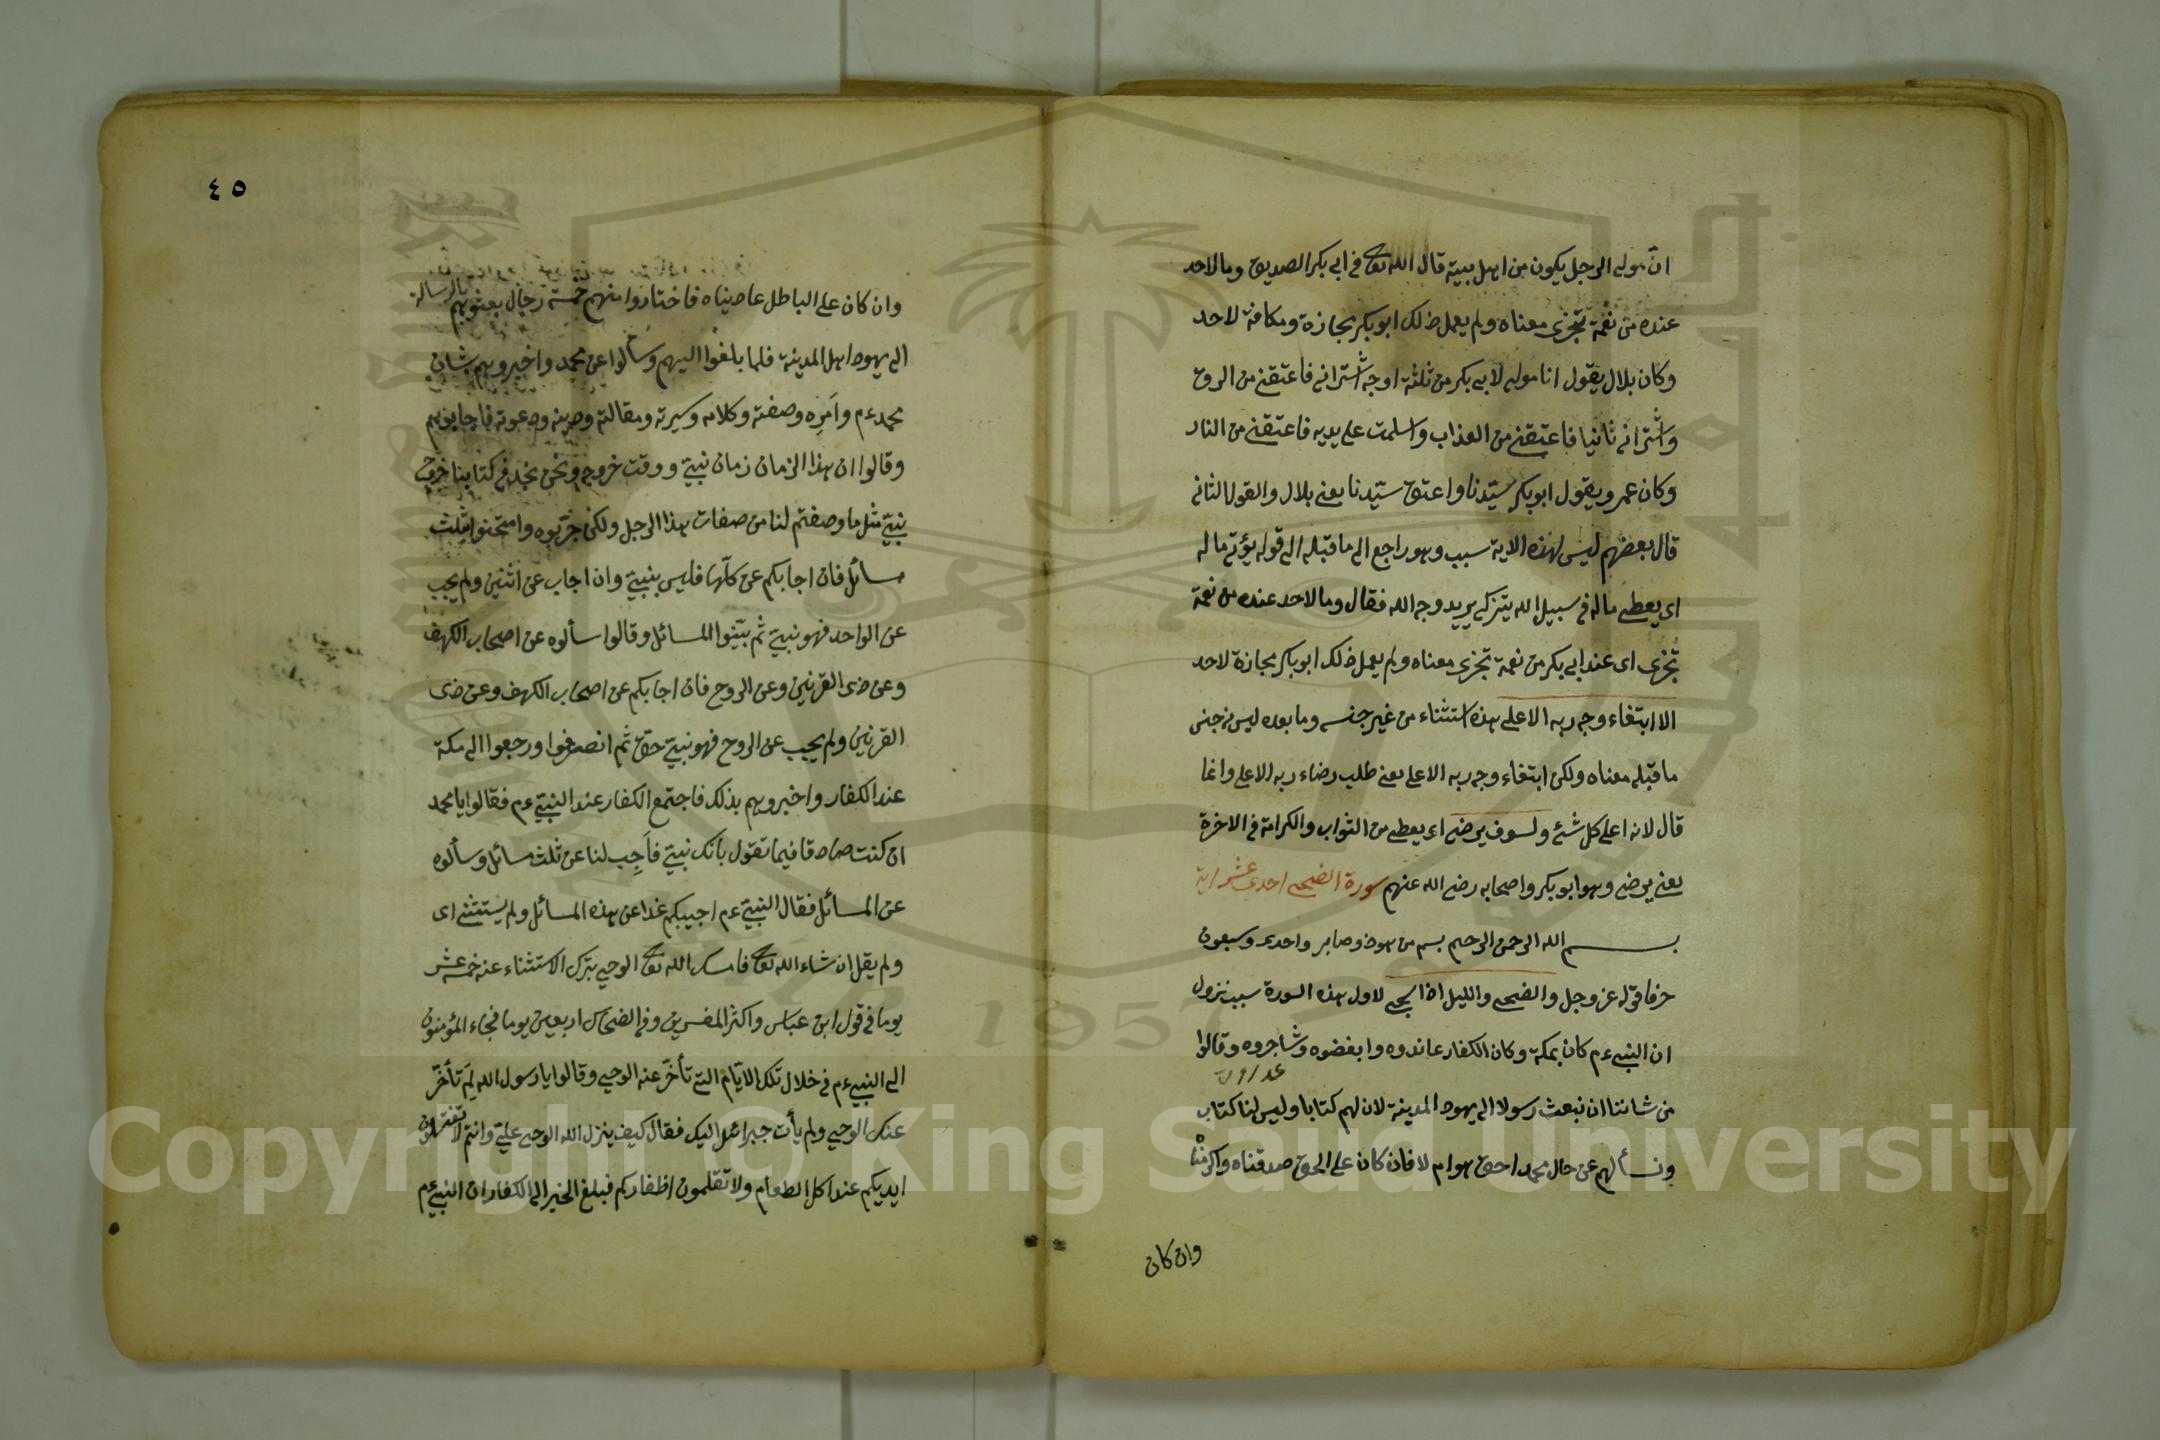 ان مولى الرجل يكون من اهل بيته قال الله تعالى في ابى بكر الصديق وما لاحد
عنده من نعمة تجزى معناه ولم يعمل ذلك ابو بكر مجازة ومكافة لاحد
وكان بلال يقول انا مولى لابى بكر من ثلثة اوجه اشترانى فاعتقنى من الروق
واشترانى ثانيا فاعتقنى من العذاب واسلمت على يديه فاعتقنى من النار
وكان عمر ويقول ابو بكر سيّدنا واعتق سيّدنا يعنى بلال والقول الثانى
قال بعضهم ليس لهذه الاية سبب وهو راجع الى ما قبله الى قوله يؤتى ماله
اى يعطى ماله فى سبيل الله يتزكى يريد وجه الله فقال وما لاحد عنده من نعمة
تجزى اى عند ابى بكر من نعمة تجزى معناه ولم يعمل ذلك ابو بكر مجازة لاحد
الا ابتغاء وجه ربه الاعلى هذه استثناء من غير جنسه وما بعده ليس من جنس
ما قبله معناه ولكن ابتغاء وجه ربه الاعلى يعنى طلب رضاء ربه الاعلى وانما
قال لانه اعلى كل شئ ولسوف يرضى اى يعطى من الثواب والكرامة فى الاخرة
يعنى يرضى وهو ابو بكر واصحابه رضى الله عنهم سورة الضحى احدى عشر اية
بسم الله الرحمن الرحيم بسم من هود وصابر واحدى وسبعون
حرفا قوله عز وجل والضحى والليل اذا سجى لاول هذه السورة سبب نزول
ان النبى ءم كان بمكة وكان الكفار عاندوه وابغضوه وشاجروه وقالوا
من شاننا ان نبعث رسولا الى يهود المدينة لان لهم كتابا وليس لنا كتاب
ونسألهم عن حال محمد احق هو ام لا فان كان على الحق صدقناه واكرمناه
وان كان
٤٥
وان كان على الباطل عاصيناه فاختاروا منهم خمسة رجال بعثوهم بالرسالة
الى يهود اهل المدينة فلما بلغوا اليهم وسألوا عن محمد واخبروهم بشان
محمد ءم وامره وصفته وكلامه وسيرته ومقالته ودينه ودعوته فاجابوهم
وقالوا ان هذا الزمان زمان نبيّ ووقت خروجه ونحن نجد فى كتابنا خروج
نبيّ مثل ما وصفتم لنا من صفات هذا الرجل ولكن جرّبوه وامتحنوا بثلث
مسائل فان اجابكم عن كلّها فليس بنبيّ وان اجاب عن اثنين ولم يجب
عن الواحد فهو نبيّ ثم بيّنوا المسائل وقالوا سألوه عن اصحاب الكهف
وعن ذى القرنين وعن الروح فان اجابكم عن اصحاب الكهف وعن ذى
القرنين ولم يجب عن الروح فهو نبيّ حق ثم انصرفوا ورجعوا الى مكة
عند الكفار واخبروهم بذلك فاجتمع الكفار عند النبيّ ءم فقالوا يا محمد
ان كنت صادقا فيما تقول بانك نبيّ فاَجِب لنا عن ثلث مسائل وسألوه
عن المسائل فقال النبيّ ءم اجيبكم غدا عن هذه المسائل ولم يستثنى اى
ولم يقل ان شاء الله تعالى فامسك الله تعالى الوحى بترك الاستثناء عنه خمسة عشر
يوما فى قول ابن عباس واكثر المفسرين وفى الضحاك اربعين يوما فجاء المؤمنون
الى النبى ءم فى خلال تلك الايّام التى تأخّر عنه الوحى وقالوا يا رسول الله لِمَ تأخّر
عنك الوحى ولم يأت جبرائل اليك فقال كيف ينزل الله الوحى عليّ وانتم لا تغسلون
ايديكم عند اكل الطعام ولا تقلمون اظفاركم فبلغ الخبر الى الكفار ان النبى ءم
Copyright © King Saud University
1957